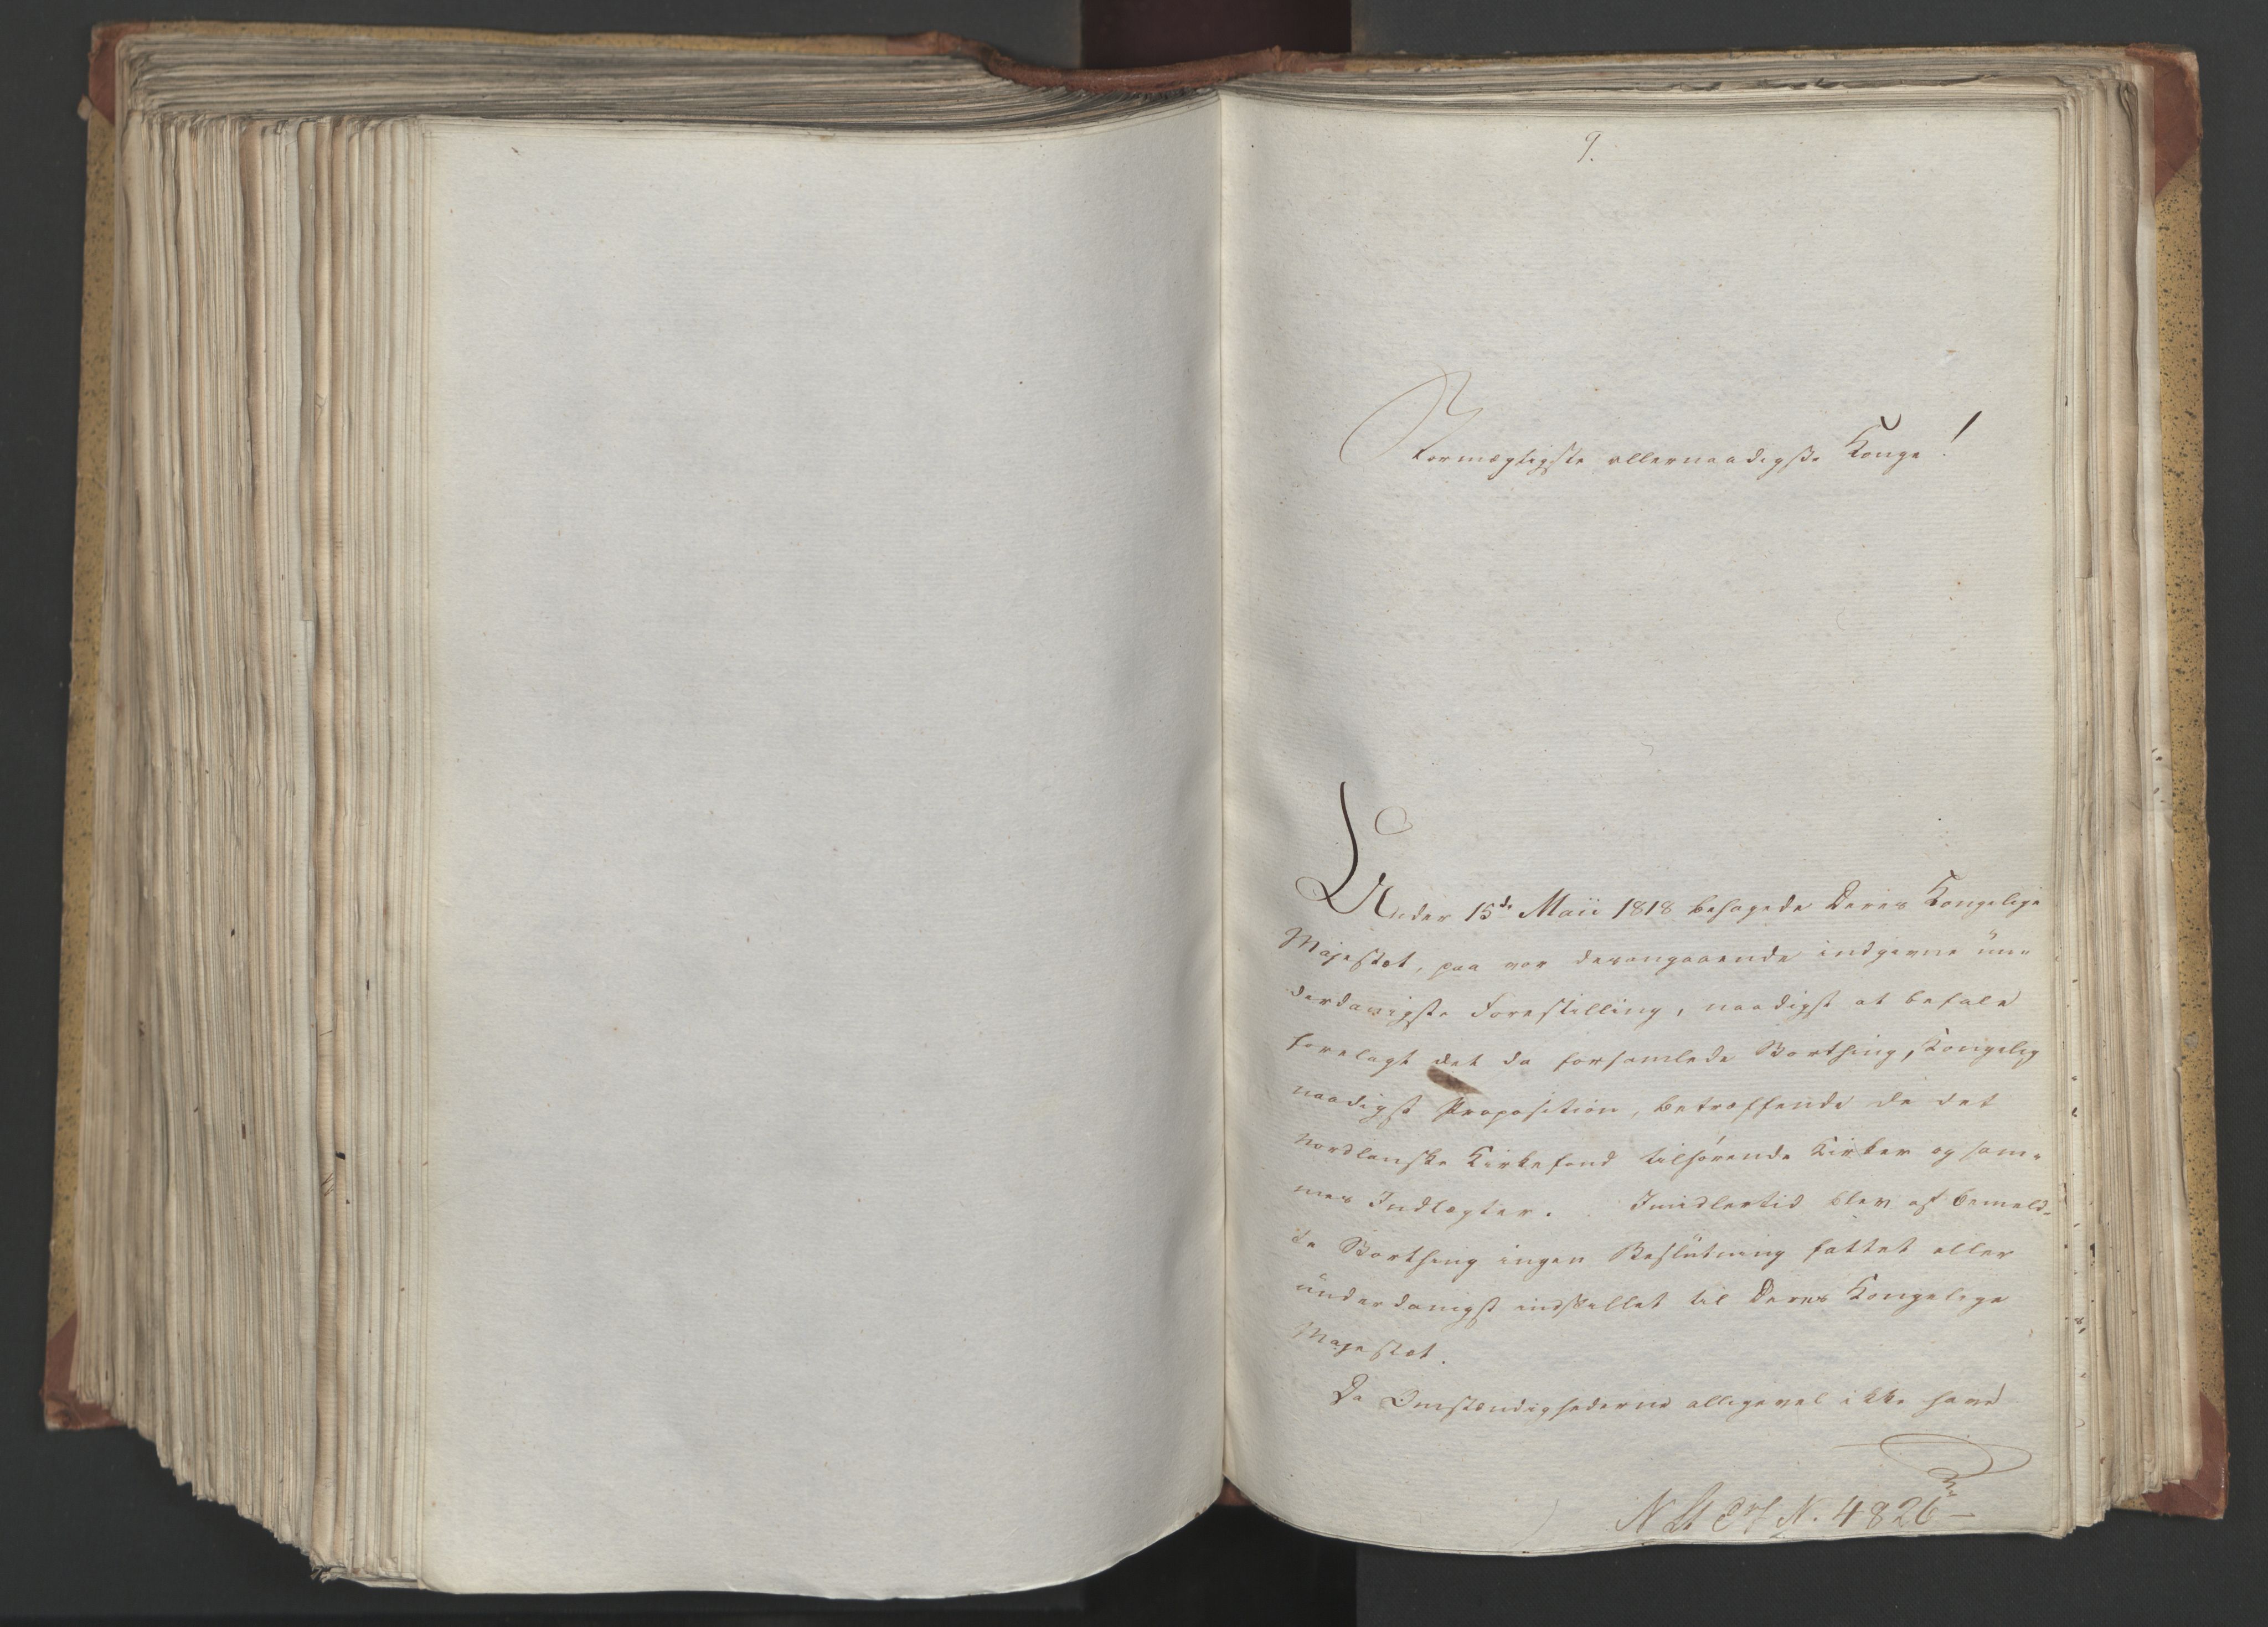 9.
Stormægtigste allernaadigste Konge!
Under 15de Maii 1818 behagede Deres Kongelige
Majestæt, paa vor derangaaende indgivne un-
derdanigste Forestilling, naadigst at befale
forelagt det da forsamlede Storthing, Kongelig
naadigst Proposition, betræffende de det
Nordlanske Kirkefond tilhørende Kirker og sam-
mes Indtægter. Imidlertid blev af bemeld-
te Storthing ingen Beslutning fattet eller
underdanigst indstillet til Deres Kongelige
Majestæt.
Da Omstændighederne alligevel ikke have
N. 4826